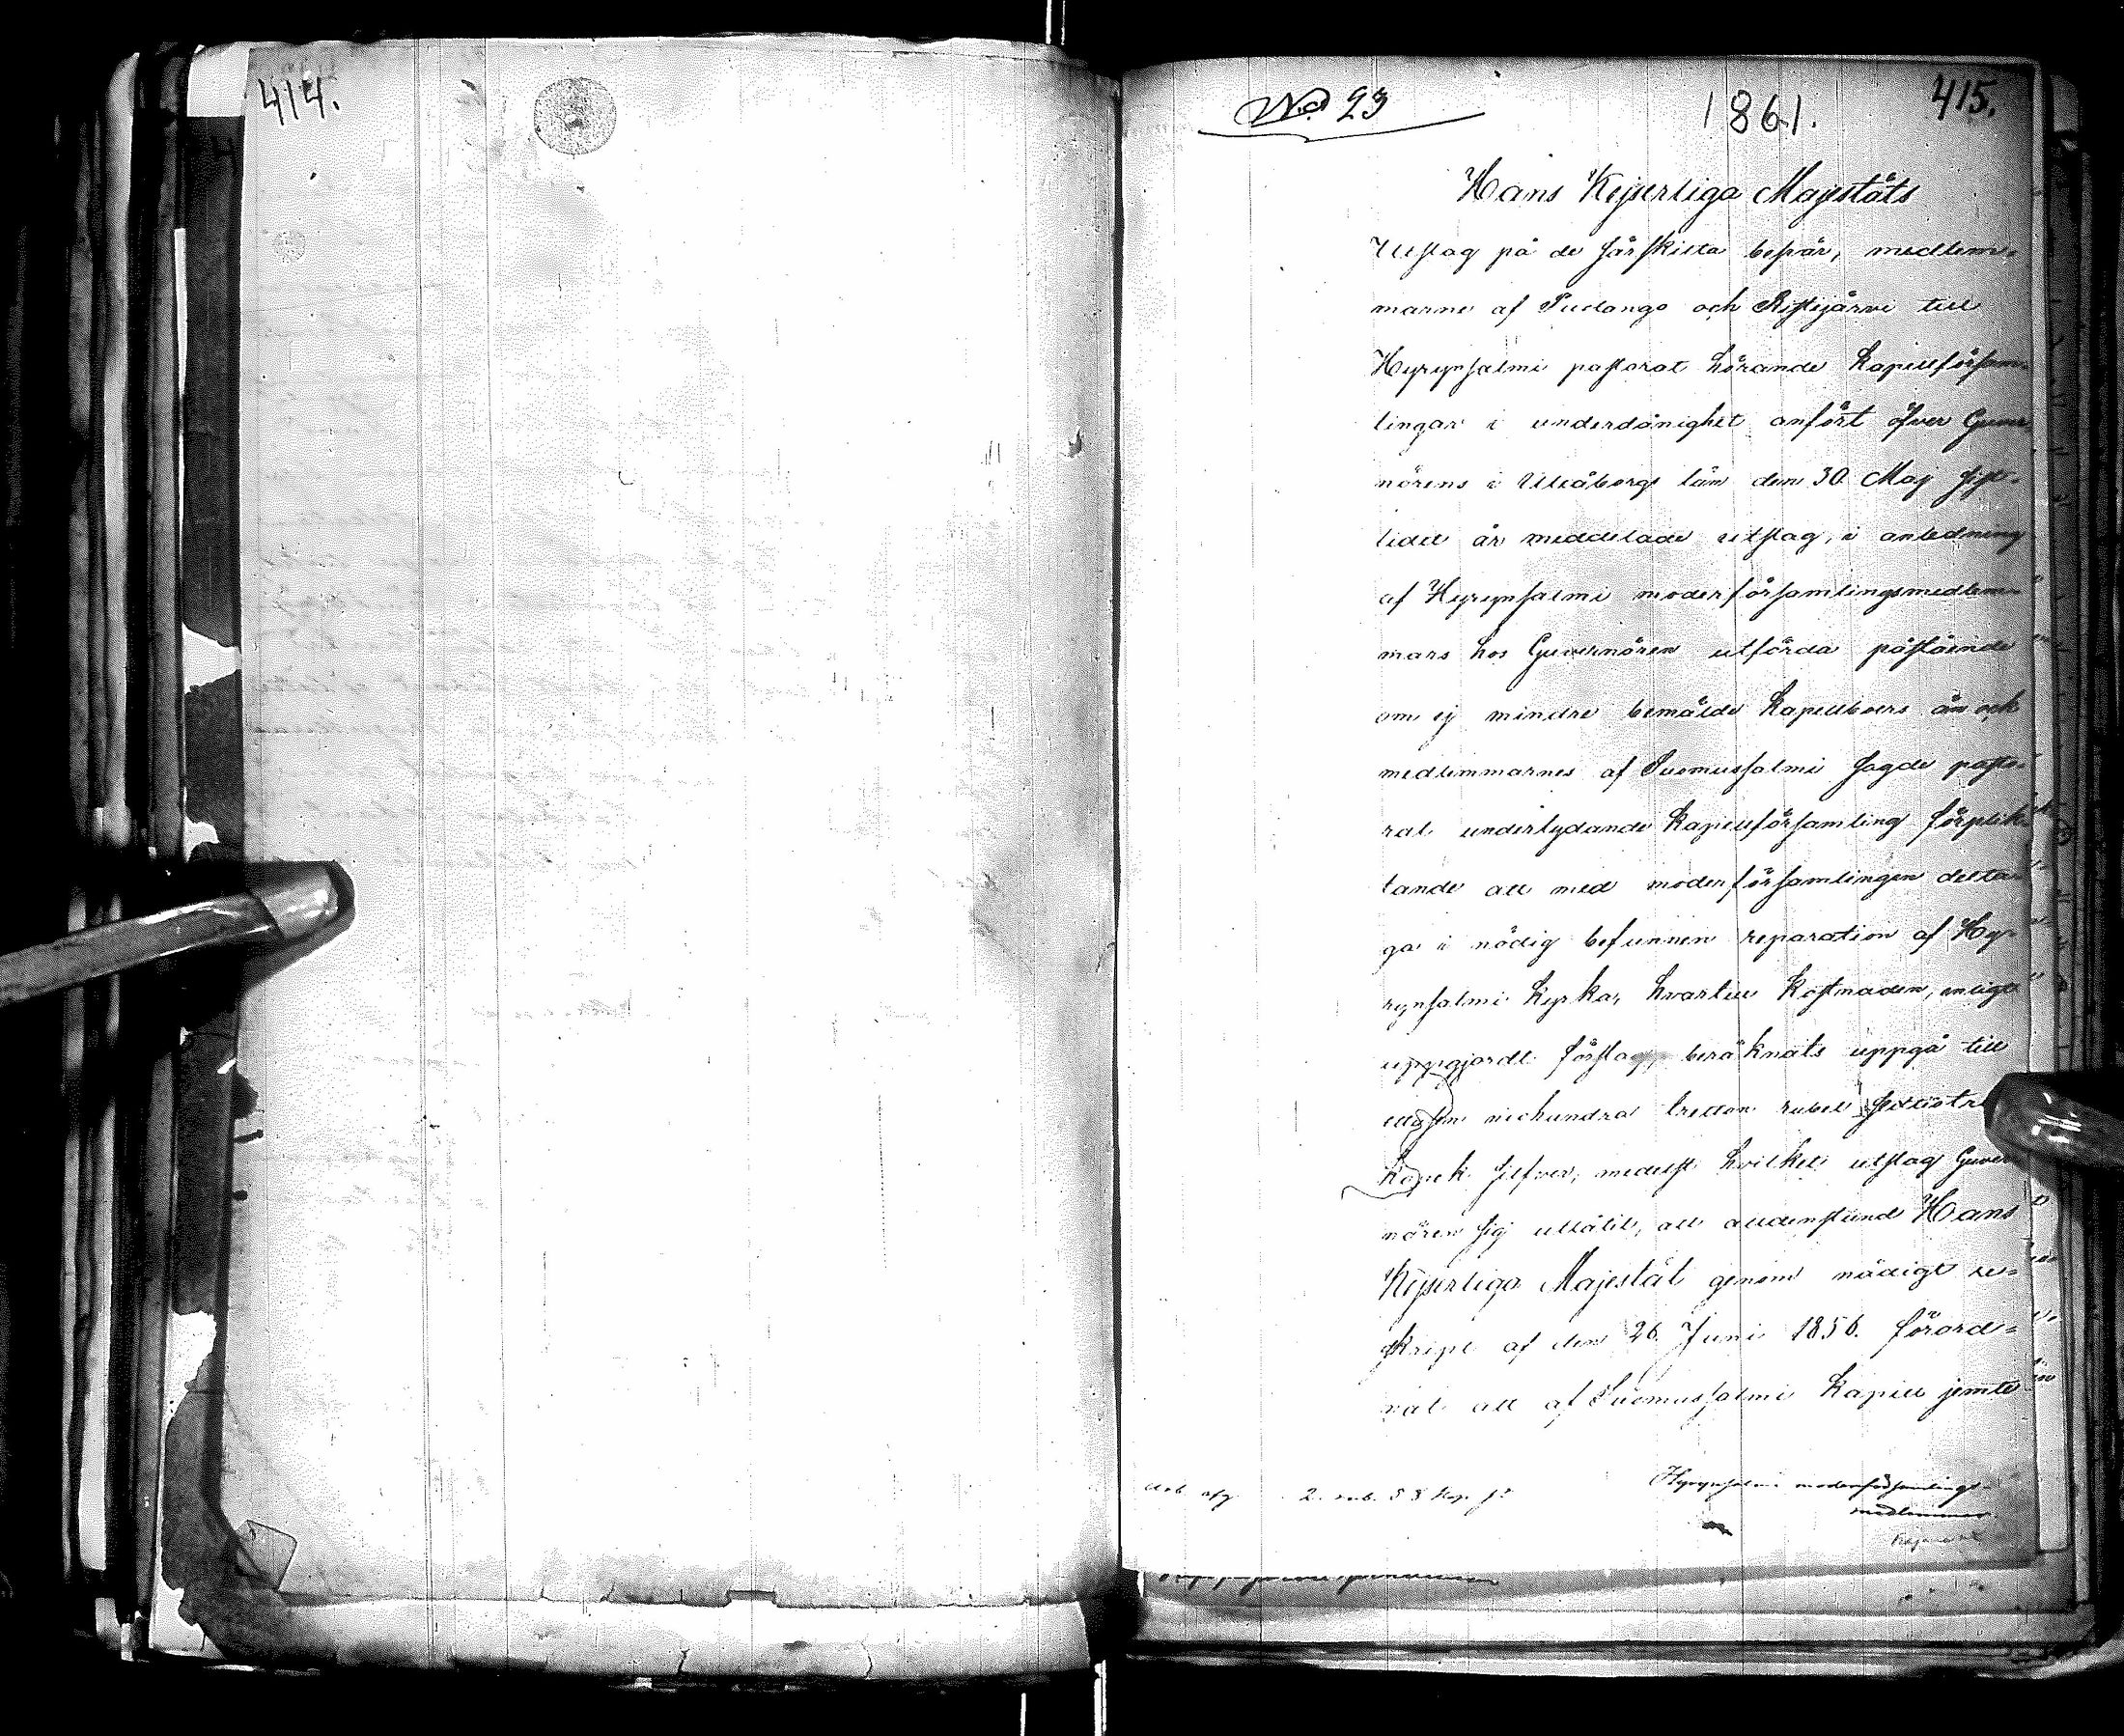 414.
No 23
1861.
415.
Hans Kejserliga Majestäts
Utslag på de särskilta besvär, medlem-
marne af Puolango och Ristijärvi till
Hyrynsalmi pastorat hörande kapellförsam-
lingar i underdånighet anfört öfver Guver
nörens i Uleåborgs län den 30 Maj sist-
lidet år meddelade utslag, i anledning
af Hyrynsalmi moderförsamlingsmedlem-
mars hos Guvernören utförda påstående
om ej mindre bemälde kapellboers än ock
medlemmarnes af Suomussalmi sagde pasto-
rat underlydande kapellförsamling förplik-
tande att med moderförsamlingen delta-
ga i nödig befunnen reparation af Hy-
rynsalmi kyrka, hvartill kostnaden, enligt
uppgjordt förslag, beräknats uppgå till
ettusen niohundra tretton rubel
kopek silfver, medelst hvilket utslag Guver
nören sig utlåtit, att alldenstund Hans
Kejserliga Majestät genom nådigt re-
skript af den 26 Juni 1856. förord-
nat att af Suomussalmi kapell jemte
2. rub. 53 kop. sr
Hyrynsalmi moderförsamlings-
medlemmar